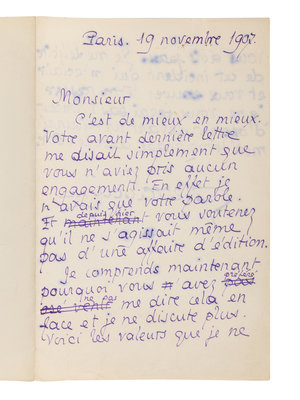 Paris. 19 novembre 1907.
Monsieur
C'est de mieux en mieux.
Votre avant dernière lettre
me disait simplement que
vous n'aviez pris aucun
engagement. En effet je
n'avais que votre parole.
depuis hier
Et maintenant vous soutenez
qu'il ne s'agissait même
pas d'une affaire d'édition.
Je comprends maintenant
préféré
pourquoi vous avez pas
ne pas
osé venir me dire cela en
face et je ne discute plus.
Voici les valeurs que je ne